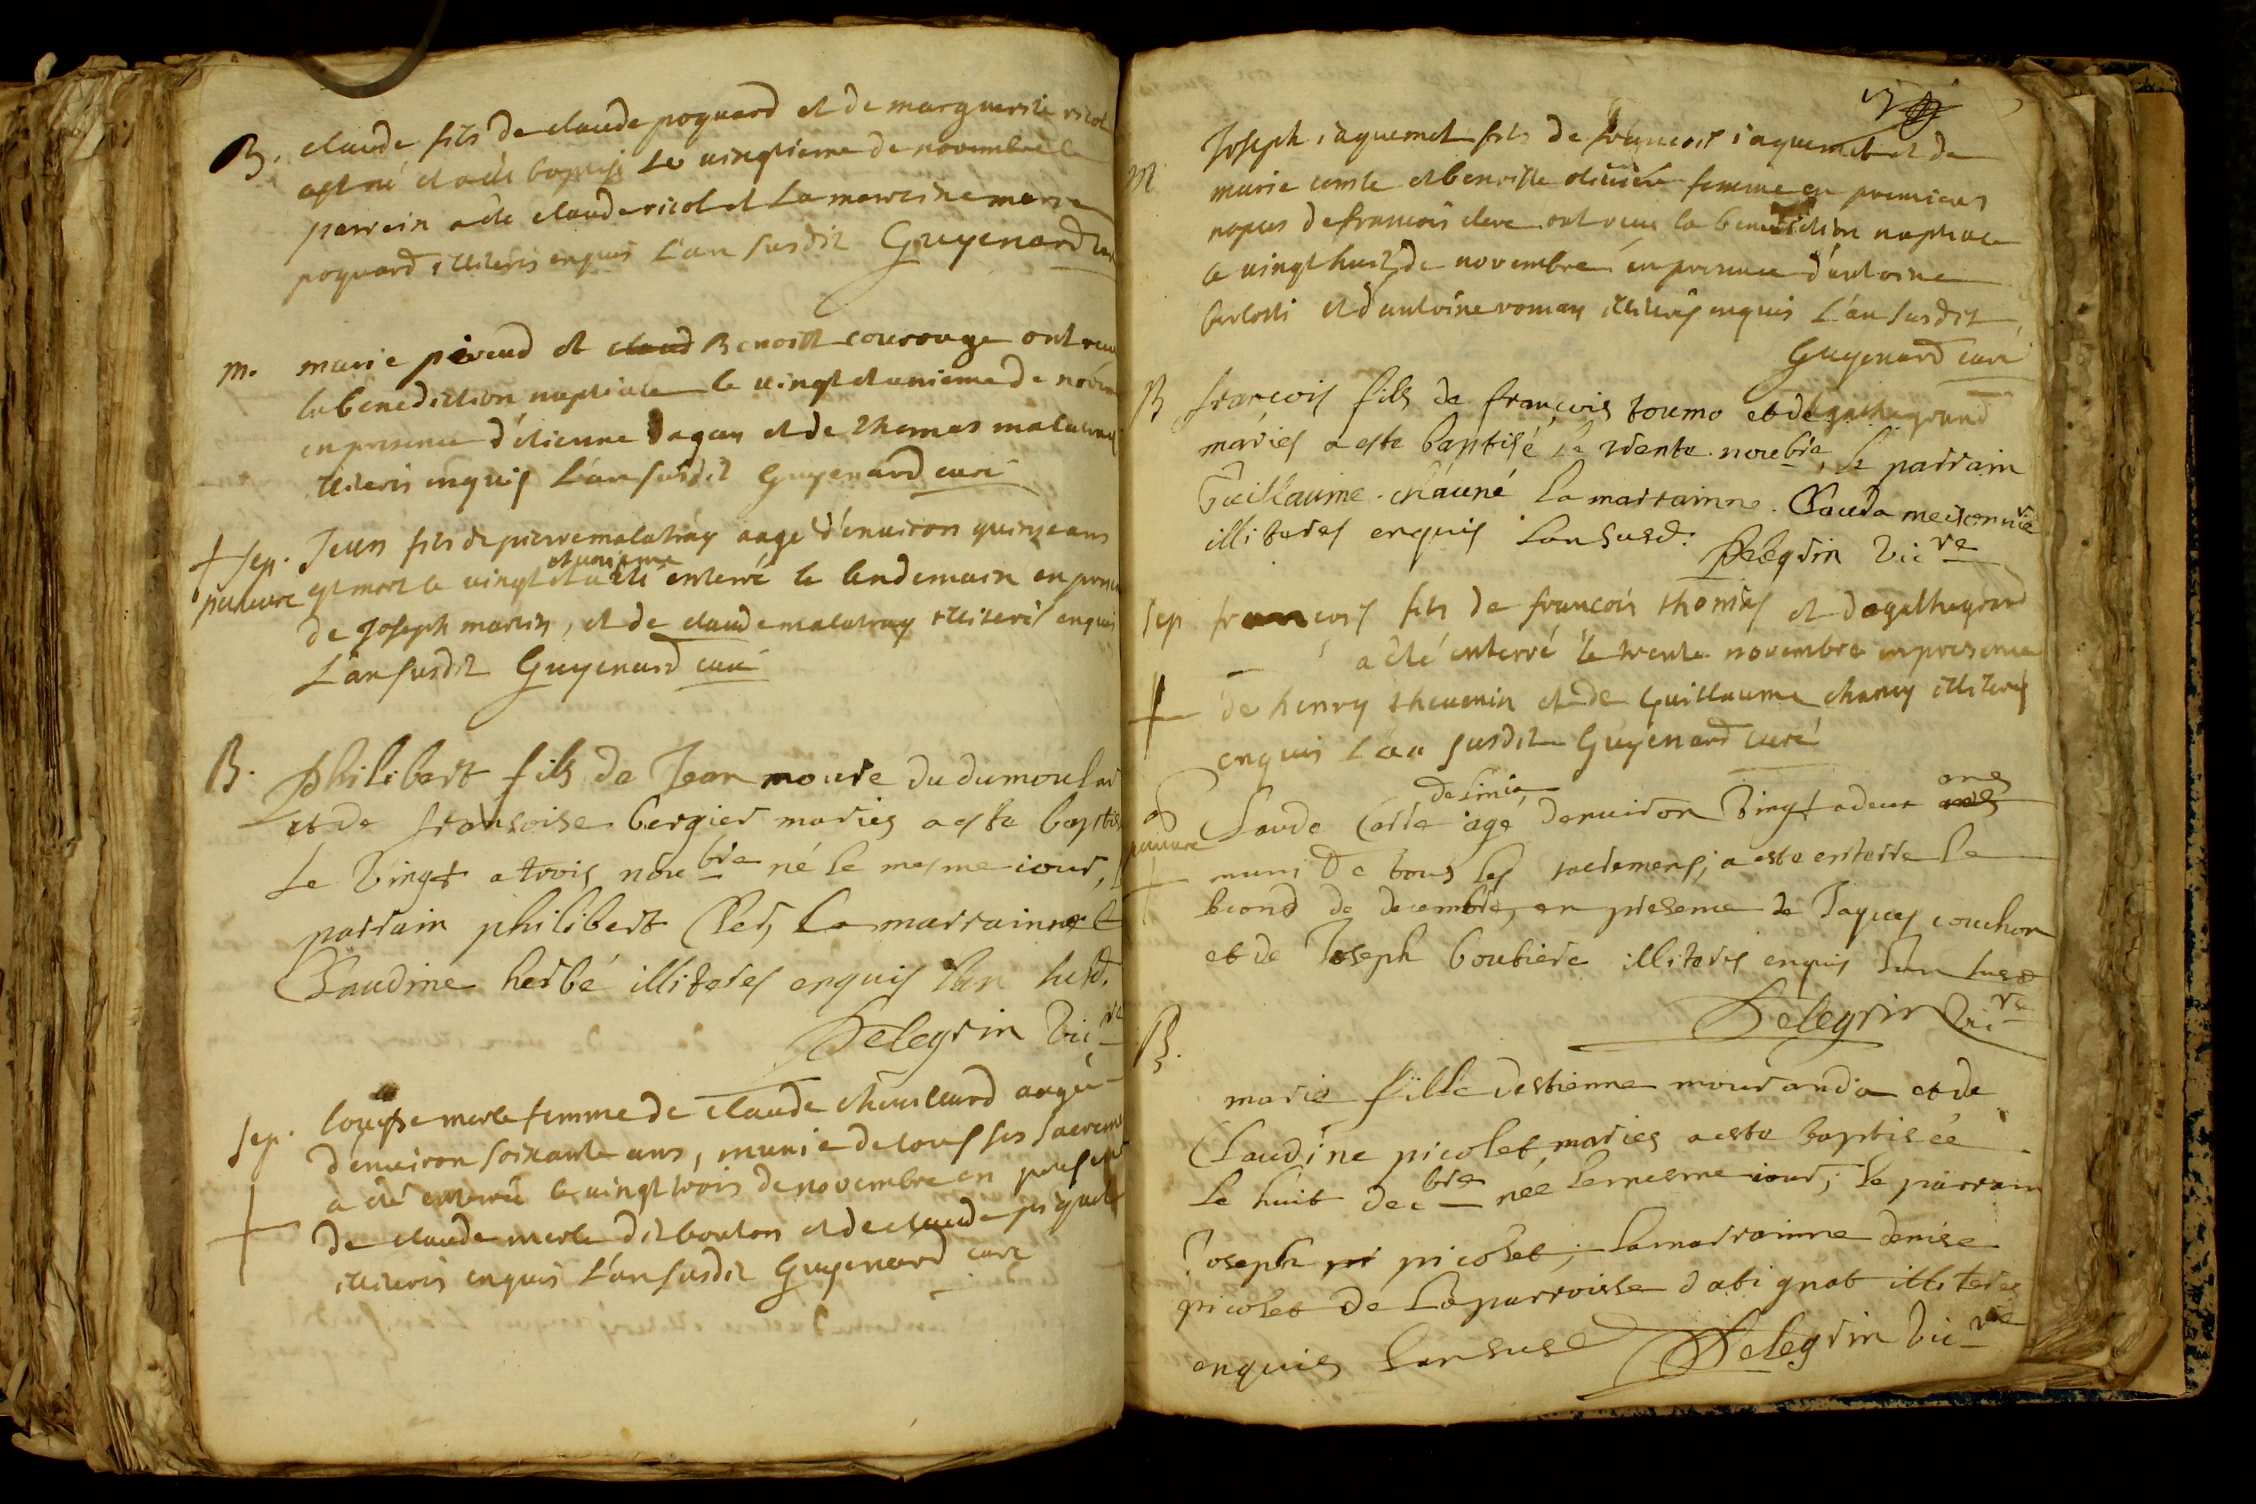 B. claude fils de claude poquard et de marguerite ricol
est né et a été baptisé Le vingtieme de novembre le
parrein a été claude ricol et La marreine marie
poquard illiteris enquis L'an susdit Guyenard curé
m. marie piroud et claud Benoitt courouge ont receu
la benediction nuptiale le vingt et unieme de novembre
en presence d'étienne et de thomas malatray
illiteris enquis L'an susdit Guyenard curé
+ sep. Jean fils de pierre malatray aagé d'environ quinze ans
pauvre est mort le vingt et unieme et a été enterré le lendemain en presence
de Joseph martin, et de claude malatray illiteris enquis
L'an susdit Guyenard curé
B. philibert fils de Jean moure du dumoulard
et de fransoise bergier mariés a este baptisé
Le vingt a trois noubre né le mesme iour, le
parrain philibert Cler, La marrainne
Claudine herbé illiteres enquis l'an susd.
Pelegrin vicre
sep. louyse merle femme de claude aagée
d'environ soixante ans, munie de tous ses sacremens
+ a été enterrée le vingt trois de novembre en presence
de claude merle dit bouton et de claude
illiteris enquis L'an susdit Guyenard curé
m Joseph iaquemet fils de françois iaquemet et de
marie comte et benoitte femme en premieres
nopces de francois clere ont receu la benediction nuptiale
le vingt huit de novembre en presence d'antoine
et d'antoine roman illiteris enquis L'an susdit
Guyenard curé
B françois fils de françois toumo et de gathe grand
mariés a este baptisé le trente noubre, le parrain
Guillaume chauné la marrainne Clauda
illiteres enquis Lan susd: Pelegrin vicre
sep francois fils de francois thomas et dagathe grand
a été enterré le trente novembre en presence
+ de henry thevenin et de Guillaume charny illiteris
enquis L'an susdit Guyenard curé
de Simia
pauvre Claude Carre agé denuiron vingt a deux ans ans
+ muni de tous les sacremens, a este enterre le
second de decembre, en presence de Jaques couchon
et de Joseph boutiere illiteres enquis l'an susd
Pelegrin vicre
B.
marie fille destienne mourandа et de
Claudine picolet mariés a esté baptisée
Le huit decbre née le mesme iour; Le parrain
Joseph pi picolet; La marrainne denise
picolet de La parroisse datignat illiteres
enquis Lan susd Pelegrin vicre